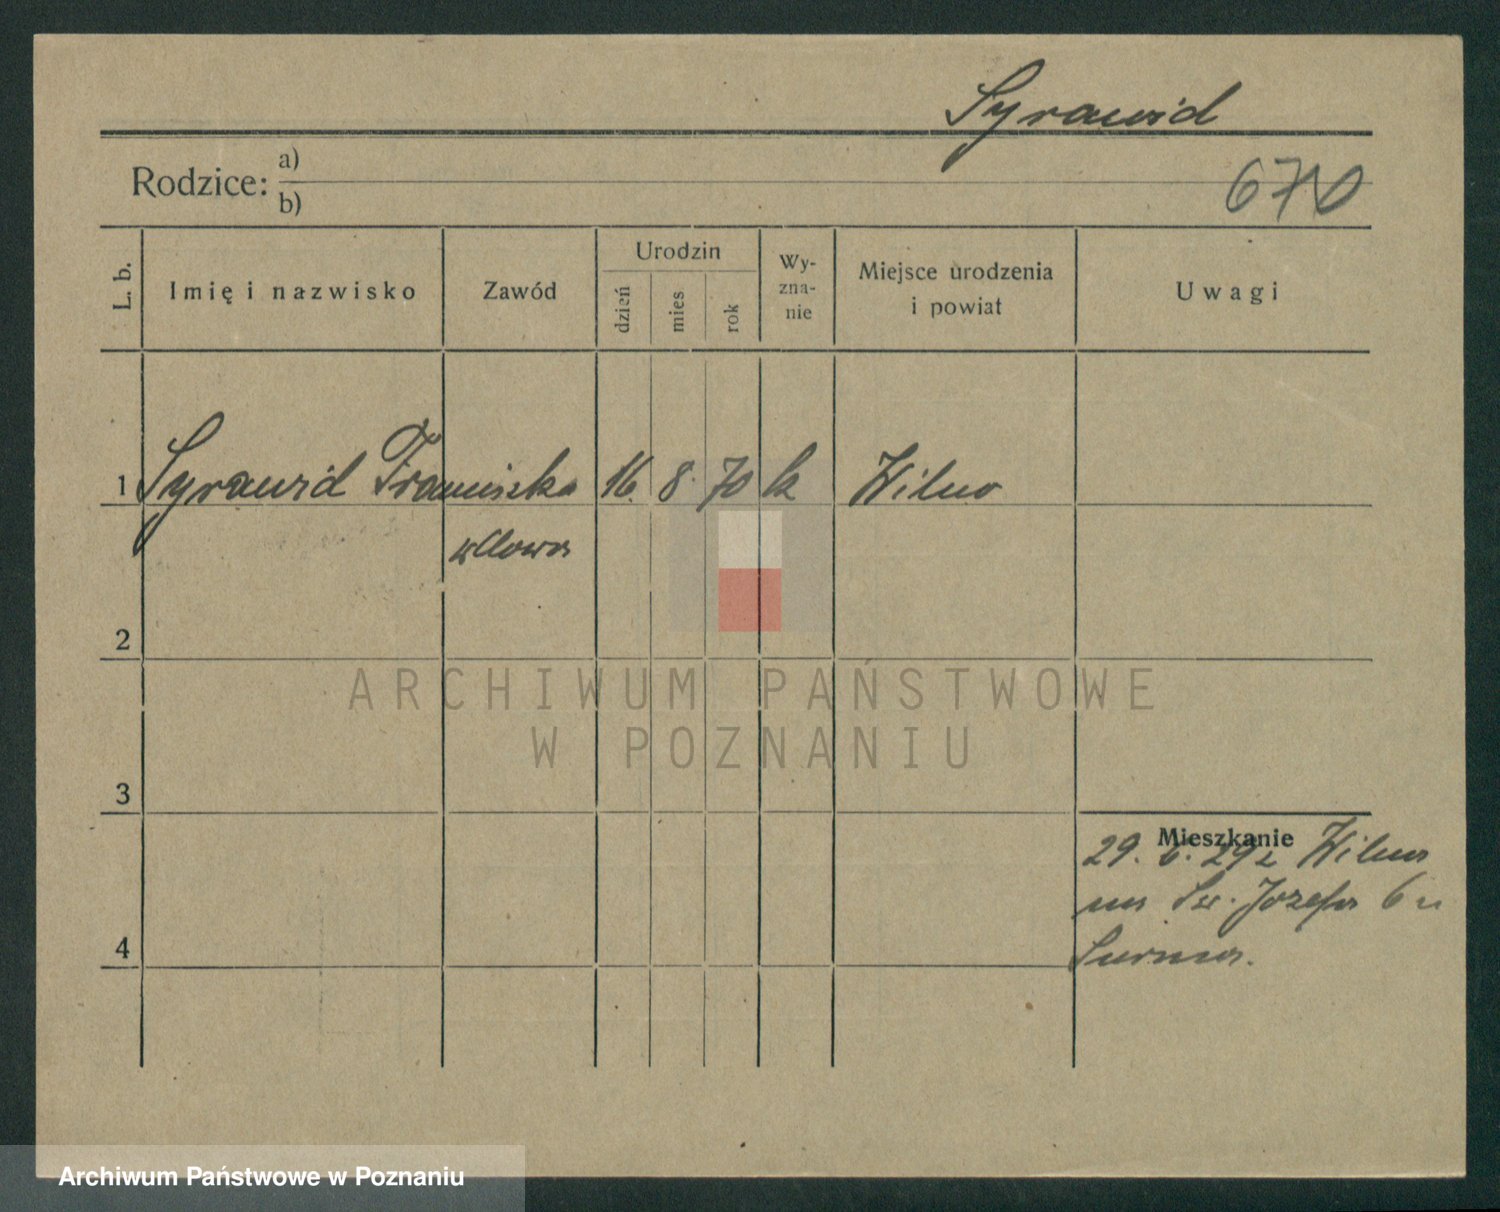 Syrawid
Rodzice: a)
b)
670
L. b.
Imię i nazwisko
Zawód
Urodzin
dzień
mies
rok
Wy-
zna-
nie
Miejsce urodzenia
i powiat
Uwagi
1 Syrawid Franciszka 16. 8. 70 k Wilno
wdowa
2
ARCHIWUM PAŃSTWOWE
W POZNANIU
3
Mieszkanie
29. 6. 292 Wilno
na Św. Józefa 6 u
4
Archiwum Państwowe w Poznaniu